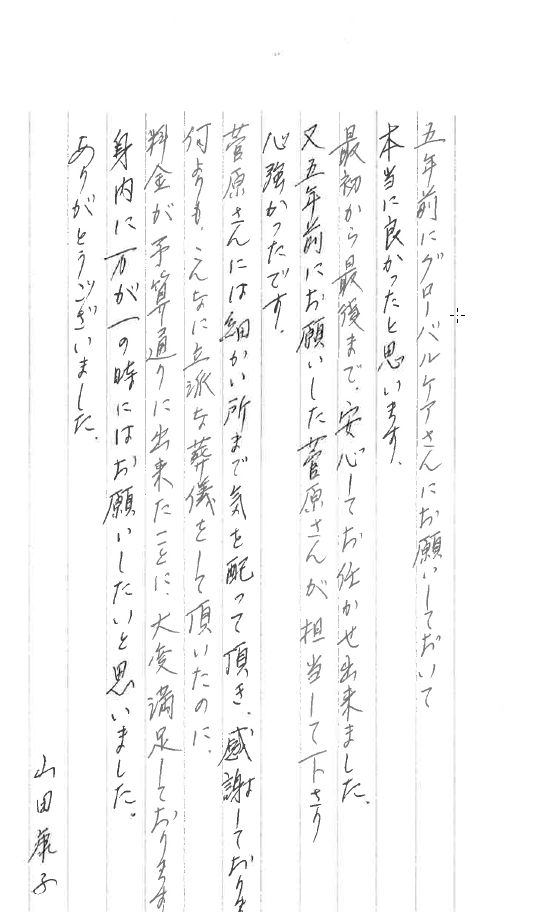 五年前にグローバルケアさんにお願いしておいて
本当に良かったと思います。
最初から最後まで、安心してお任かせ出来ました。
又五年前にお願いした菅原さんが担当して下さり
心強かったです。
菅原さんには細かい所まで気を配って頂き、感謝しておりま
何よりも、こんなに立派な葬儀をして頂いたのに、
料金が予算通りに出来たことに、大変満足しております
身内に万が一の時にはお願いしたいと思いました。
ありがとうございました。
山田康子